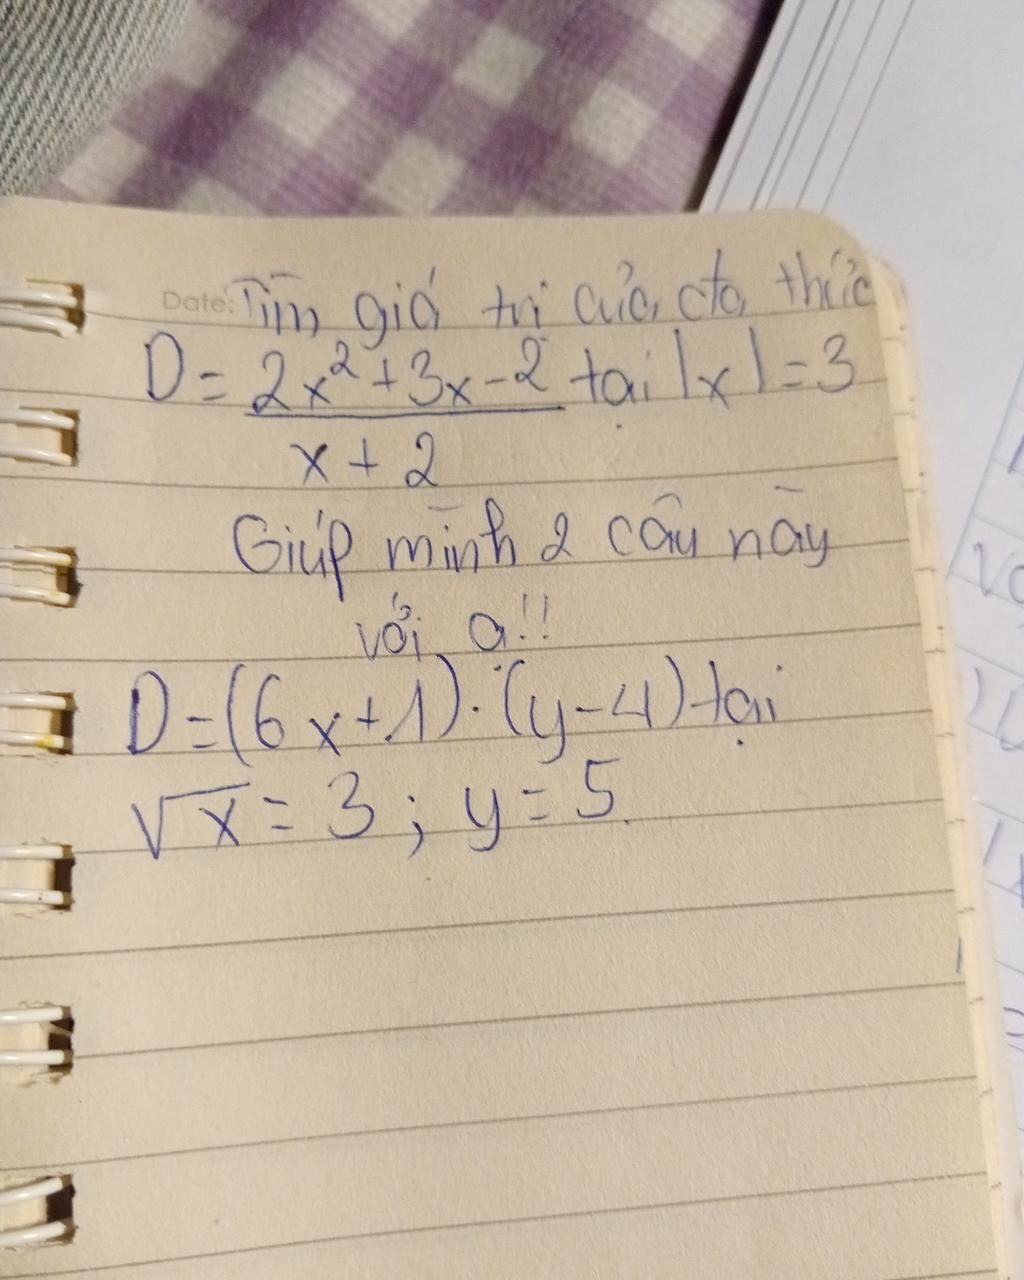 Date: Tìm giá trị của đa thức
D = 2x² + 3x - 2 tại |x| = 3
x + 2
Giúp mình 2 câu này
với ạ!!
D = (6x + 1) . (y - 4) tại
√x = 3 ; y = 5.